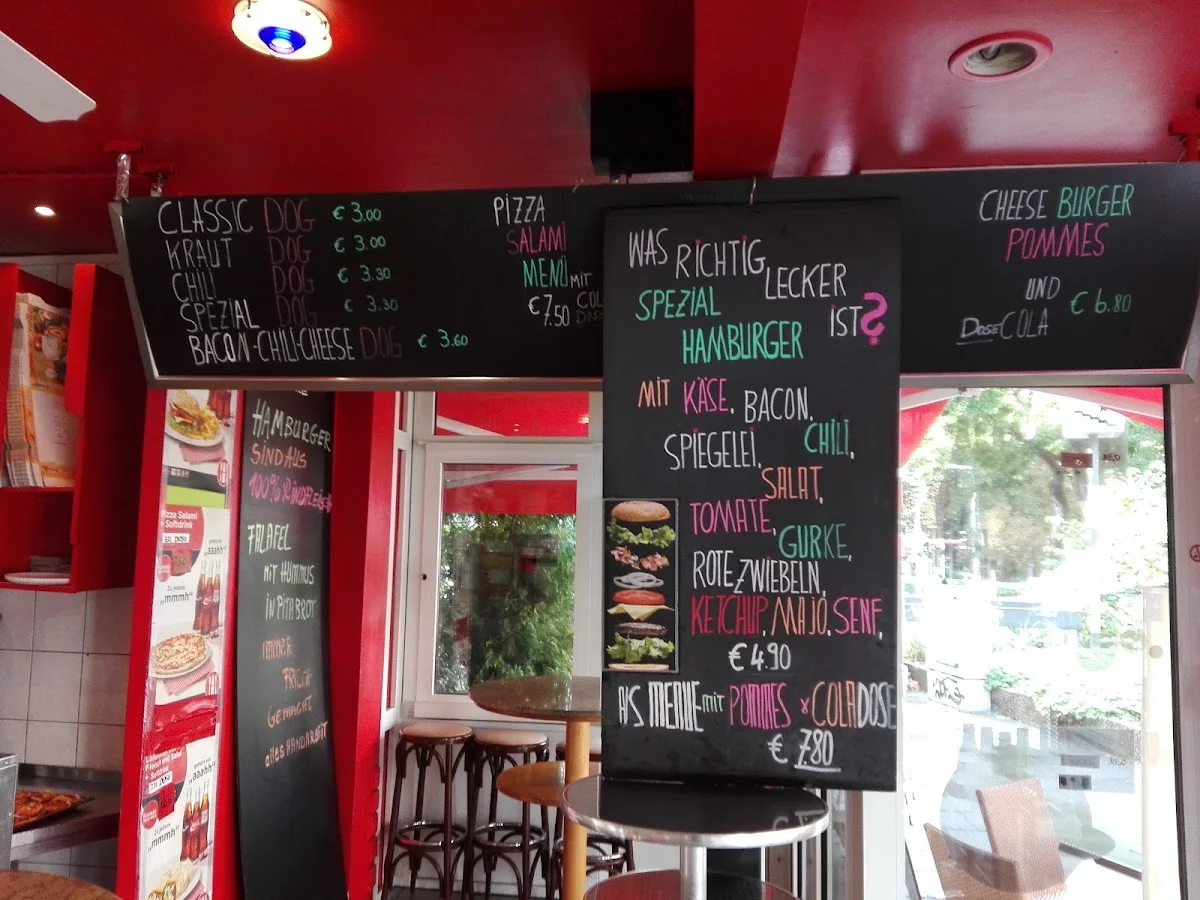 CLASSIC DOG € 3.00
KRAUT DOG € 3.00
CHILI DOG € 3.30
SPEZIAL DOG € 3.30
BACON-CHILI-CHEESE DOG € 3.60
PIZZA
SALAMI
MENÜ MIT
€7.50 COLA
DOSE
WAS RICHTIG
LECKER
SPEZIAL
IST?
HAMBURGER
MIT KÄSE, BACON,
SPIEGELEI, CHILI,
SALAT,
TOMATE,
GURKE,
ROTE ZWIEBELN,
KETCHUP, MAJO, SENF,
€ 4.90
ALS MENUE MIT POMMES & COLADOSE
€ 7.80
CHEESE BURGER
POMMES
UND
DOSE COLA
€ 6.80
HAMBURGER
SIND AUS
100% RINDFLEISCH
FALAFEL
MIT HUMMUS
IN PITABROT
IMMER
FRISCH
GEMACHT
alles HANDARBEIT
Pizza Salami
+ Softdrink
"aaahh"
Zu jedem
"mmmh"
"aaahh"
Zu jedem
"mmmh"